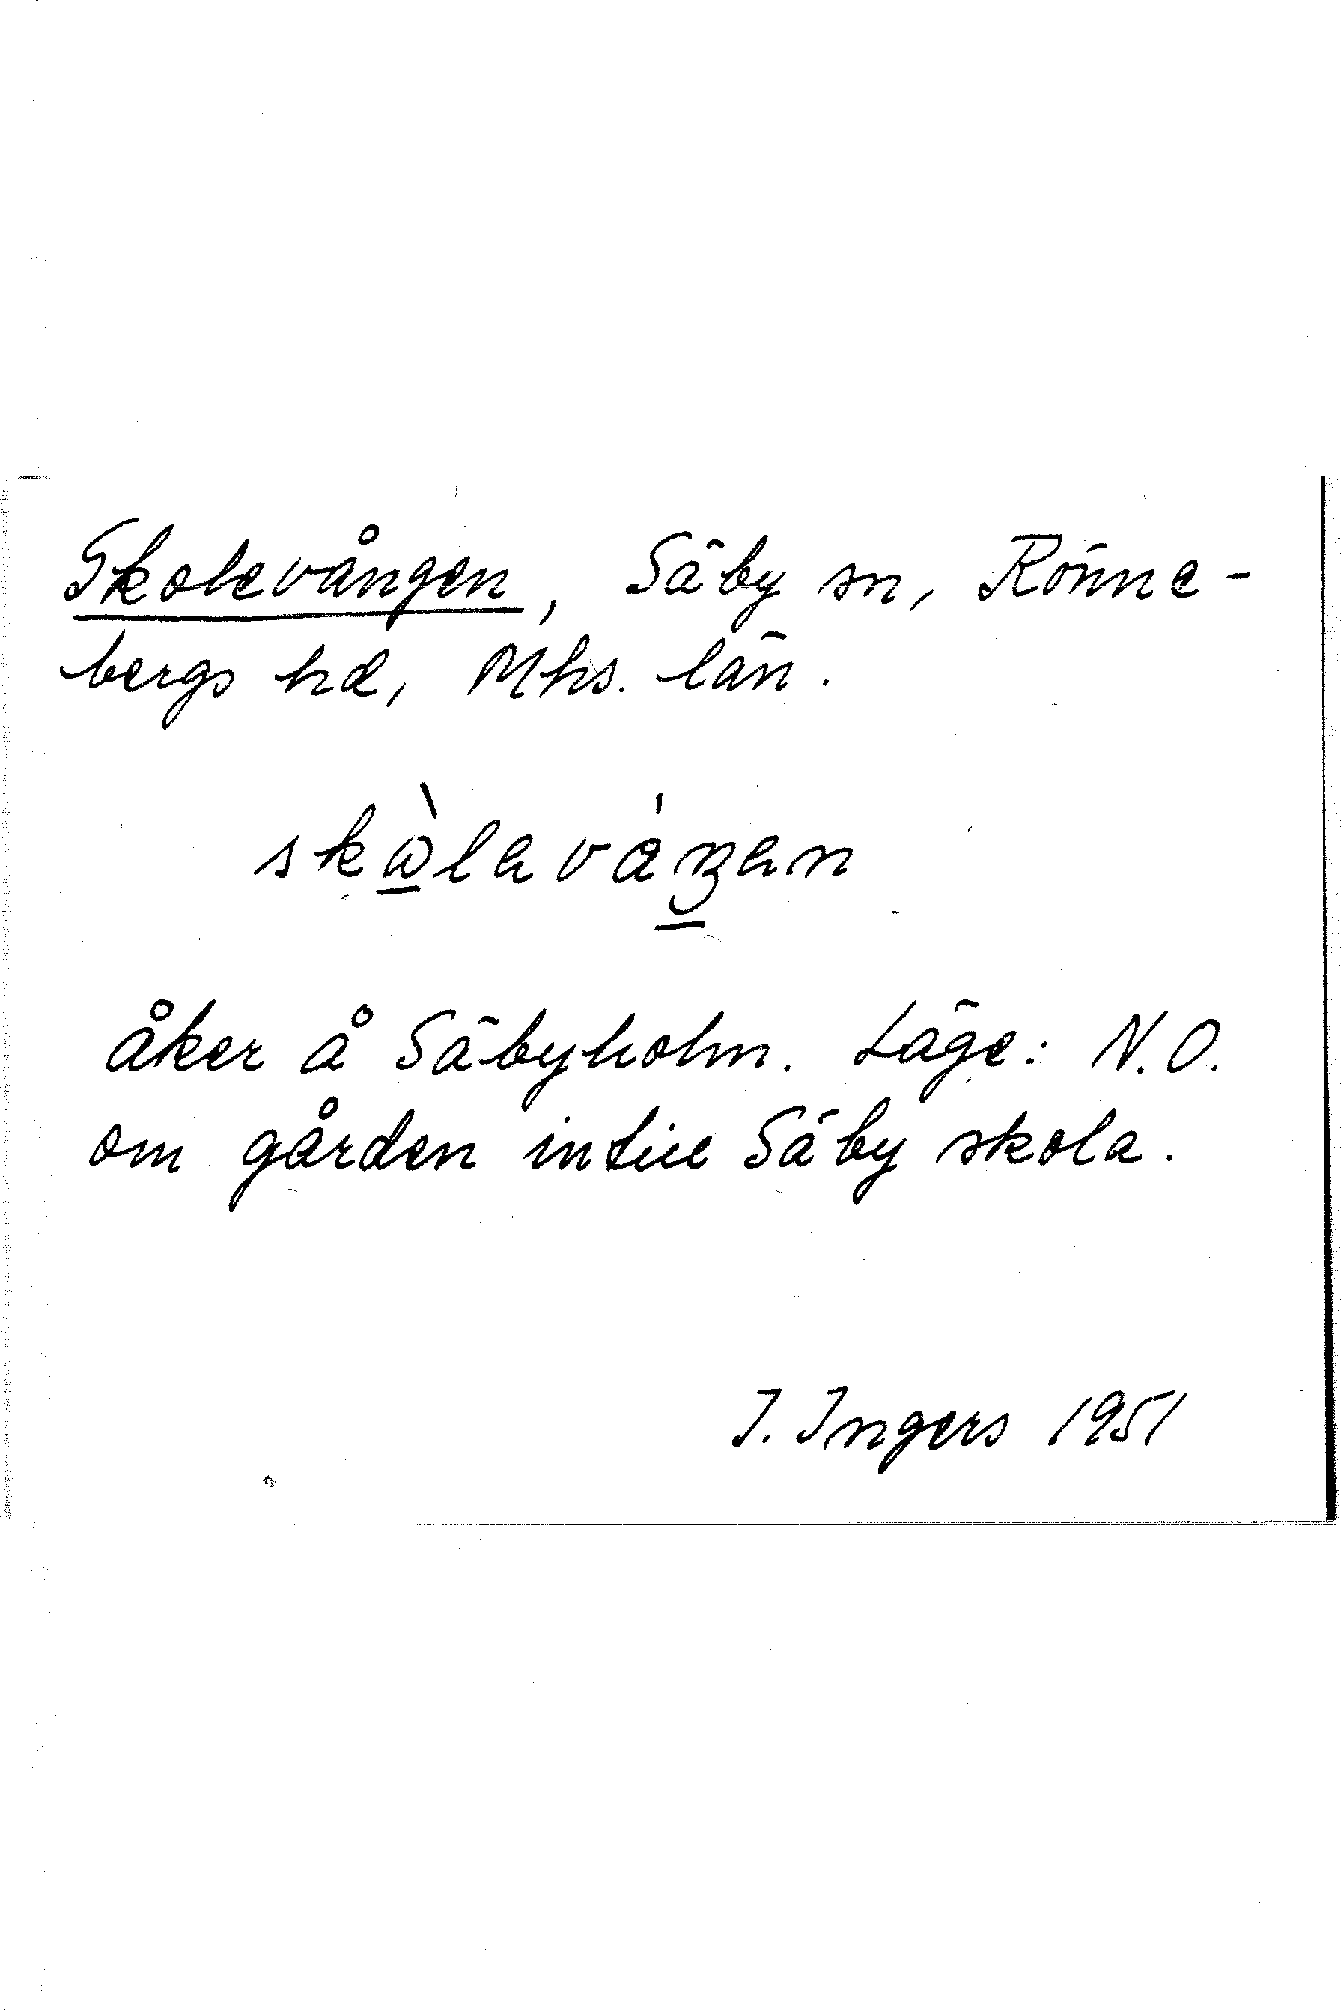 Skolevången, Säby sn, Rönne-
bergs hd, Mhs. län.
skὼ̲laváŋ̲an
åker å Säbyholm. Läge: N.O.
om gården intill Säby skola.
I. Ingers 1951